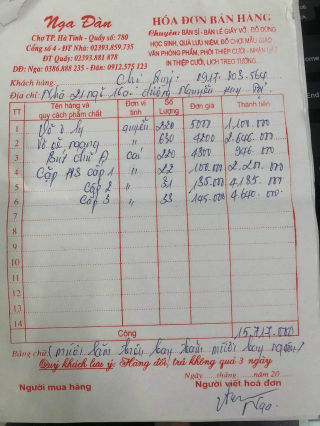 Nga Dân
Chợ TP. Hà Tĩnh - Quầy số: 780
Cổng số 4 - ĐT Nhà: 02393.859.735
ĐT Quầy: 02393.881 878
DĐ: Nga: 0386.888 235 - Dân: 0912.575 123
HÓA ĐƠN BÁN HÀNG
Chuyên: BÁN SỈ - BÁN LẺ GIẤY VỞ, ĐỒ DÙNG
HỌC SINH, QUÀ LƯU NIỆM, ĐỒ CHƠI MẪU GIÁO
VĂN PHÒNG PHẨM, PHÔI THIỆP CƯỚI - NHẬN ĐẶT
IN THIỆP CƯỚI, LỊCH TREO TƯỜNG.
Khách hàng: Chị 0917. 203.564
Địa chỉ: đường Nguyễn Huy
TT Tên hàng và quy cách phẩm chất Đơn vị tính Số Lượng Đơn giá Thành tiền
1 Vở ô ly quyển 220 5000 1.100.000
2 Vở " 630 4200 2.646.000
3 Bút chì cái 220 4300 946.000
4 Cặp HS cấp 1 " 22 100.000 2.200.000
5 Cấp 2 " 31 135.000 4.185.000
6 Cấp 3 " 33 4.640.000
7
8
9
10
11
12
13
14
Cộng 15.717.000
Bằng chữ: (mười lăm triệu bảy trăm mười bảy ngàn)
Quý khách lưu ý: Hàng đổi, trả không quá 3 ngày
Ngày..... tháng..... năm 20....
Người mua hàng Người viết hoá đơn
Nga